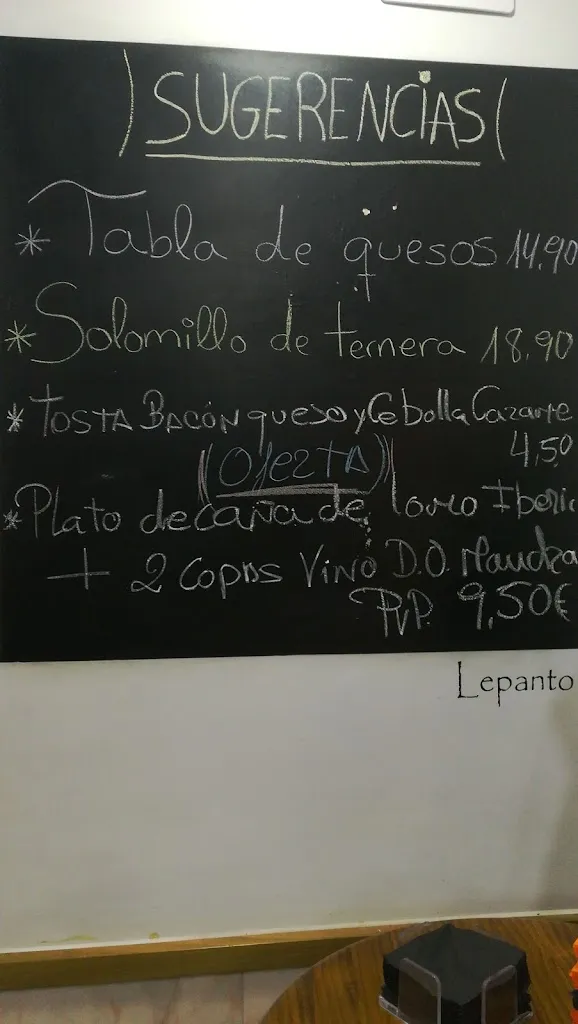 SUGERENCiAS
* Tabla de quesos 14.90
* Solomillo de ternera 18.90
* TOSTA BACÓN queso y Cebolla
4,50
(Oferta)
* Plato de caña de lomo Iberic
+ 2 copas Vino D.O. Mancha
PVP. 9,50€
Lepanto